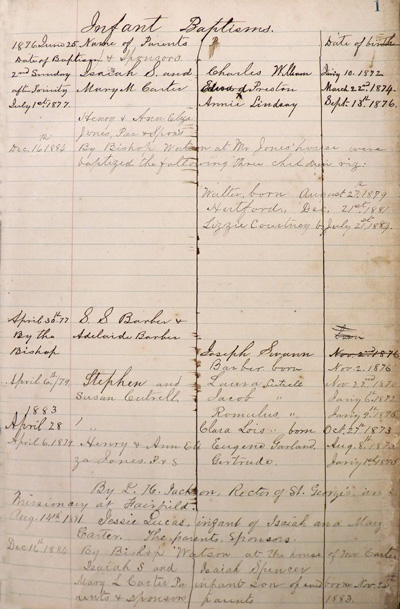 1
Infant Baptisms.
1876 June 25 Name of Parents Date of birth
Date of Baptism & Sponsors
2nd Sunday Isaiah S. and Charles William Jan'y 10. 1872
after Trinity Mary M. Carter Edward Preston March 22nd 1874.
July 1st 1877. Annie Lindsay Sept. 18th 1876.
Henry & Ann Eliza
Jones, Par & spons
Dec. 16 1884 By Bishop Watson at Mr Jones' house were
baptized the following three children viz:
Walter, born August 27th, 1879
Hertford, Dec. 21st, 1881
Lizzie Courtney b July 21st, 1884.
April 30th 77 S. S Barber &
By the Adelaide Barber
Bishop Joseph Swann Nov. 2nd 1876
Barber born Nov. 2. 1876
April 6th/79. Stephen and Lucera Nov 22nd 1870
Susan Cutrell Jacob " Jan'y 6th 1872
1883 Romulus " Jan'y 9th 1875
April 28 Clara Lois " born Oct. 25th 1873
April 6. 1879 Henry & Ann Eli Eugene Garland. Aug. 8th 1873
za Jones. P. & S Gertrude.
By L. H. Jackson, Rector of St. George's and
Missionary at Fairfield.
Aug. 14th 1881 Jessie Lucas, infant of Isaiah and Mary
Carter. The parents, Sponsors.
Dec 16th 1884 By Bishop Watson at the house of Mr Carter
Isaiah S and Isaiah Spencer
Mary L Carter Pa infant son of said born Nov.
rents & sponsors parents 1883.